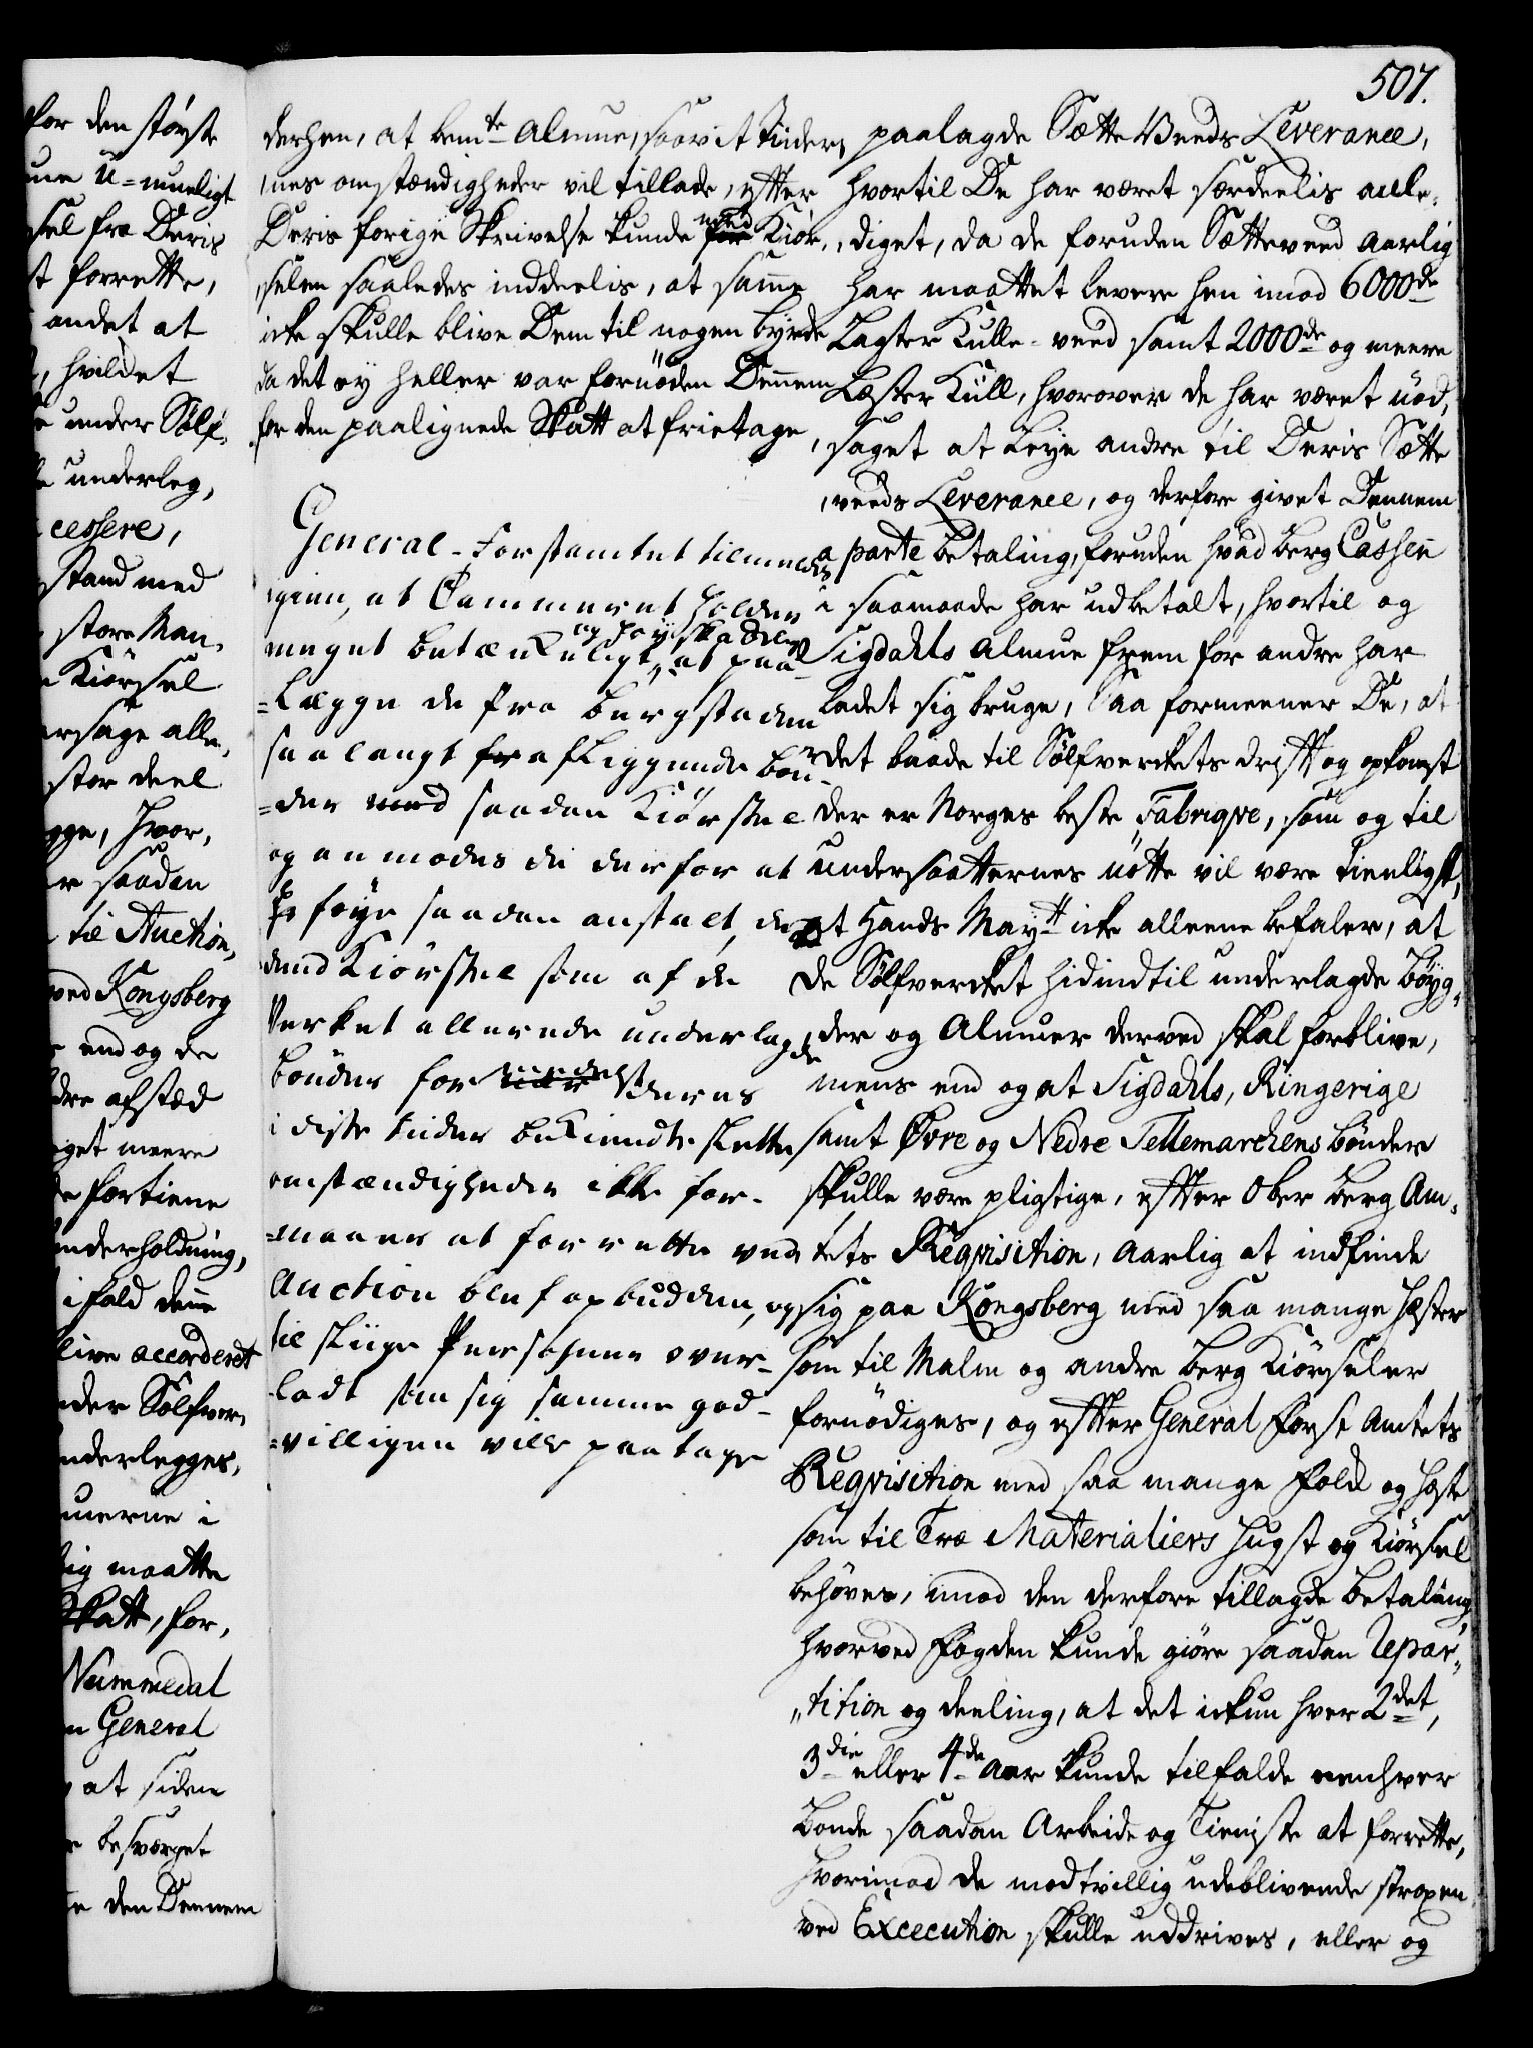 507.
for den störste
une u=mueligt
sel fra Deris
st forrette,
andet at
, hvildet
e under Sölf,
e underleg,
cessere,
stand med
store Man,
e Kiörsel
rsage alle,
stor deel
gge, hvor,
er saadan
til Auction,
ved Kongsberg
end og de
dre afsted
get meere
e fortiene
nderholdning,
ifald denne
live accorderet
nder Sölfver,
nderlegges,
uerne i
lig maatte
Skatt, for,
Nummedal
n General
at siden
e besværget
e den Dennem
derhen, at bemte Almue, saavit tiider,
,nes omstændigheder vil tillade, efter
Deris forige Skrivelse kunde for med Kiör,
,selen saaledes inddeelis, at samme
icke skulle blive Dem til nogen byrde
da det ey heller var fornöden Dennem
for den paalignede Skatt at frietage
General-Forstamtet tilmeldes
igien, at Cammeret holder
meget betænkeligt, og höy skadeligt at paa
=lægge de fra bergstaden
saa langt fra afliggende bön-
=der med saadan Kiörsel
og anmodes de derfor at
föye saadan anstalt, at
dend Kiörsel som af de
Verket allerede underlagde
bönder for deres
i disse tiider bekiendte slette
omstændigheder ikke for-
=maaes at forrette ved
Auction blef opbuden, og
til sliige Persohner over-
-ladt som sig samme god-
=villigen ville paatage
paalagde Sætte Veeds Leverance,
hvortil De har været særdeelis anle,
,diget, da de foruden Sætteveed aarlig
har maattet levere hen imod 6000de
Lagter Kulle-veed samt 2000de og meere
Læster Kull, hvorover de har været nöd,
,saget at leye andre til Deris Sætte
,veeds Leverance, og derfore givet Dennem
a parte betaling, foruden hvad berg Cassen
i saamaade har udbetalt, hvortil og
Sigdahls Almue frem for andre har
ladet sig bruge, Saa formeener De, at
det baade til Sölfverckets drift og opkomst
der er Norges beste Fabriqve, som og til
undersaatternes nötte vil være tienligst,
at Hands Maytt icke alleene befaler, at
de Sölfvercket hidindtil underlagde Böyg,
,der og Almuer derved skal forblive,
mens end og at Sigdahls, Ringerige
samt Övre og Nedre Tellemarchens bönder
skulle være pligtige, efter Ober Berg Am,
,tets Reqvisition, aarlig at indfinde
sig paa Kongsberg med saa mange Hæster
som til Malm og andre berg Kiörseler
fornödiges, og efter General Forst Amtets
Reqvisition med saa mange Folk og Hæste
som til Træ Materialiers hugst og Kiörsel
behöves, imod den derfore tillagde betaling,
hvorved Fogden kunde giöre saadan Repar„
„tition og deeling, at det ickun hver 2det,
3die eller 4de Aar kunde tilfalde eenhver
bonde saadan Arbeide og Tieniste at forrette,
hvorimod de modtvillig udeblivende straxen
ved Excecution skulle uddrives, eller og